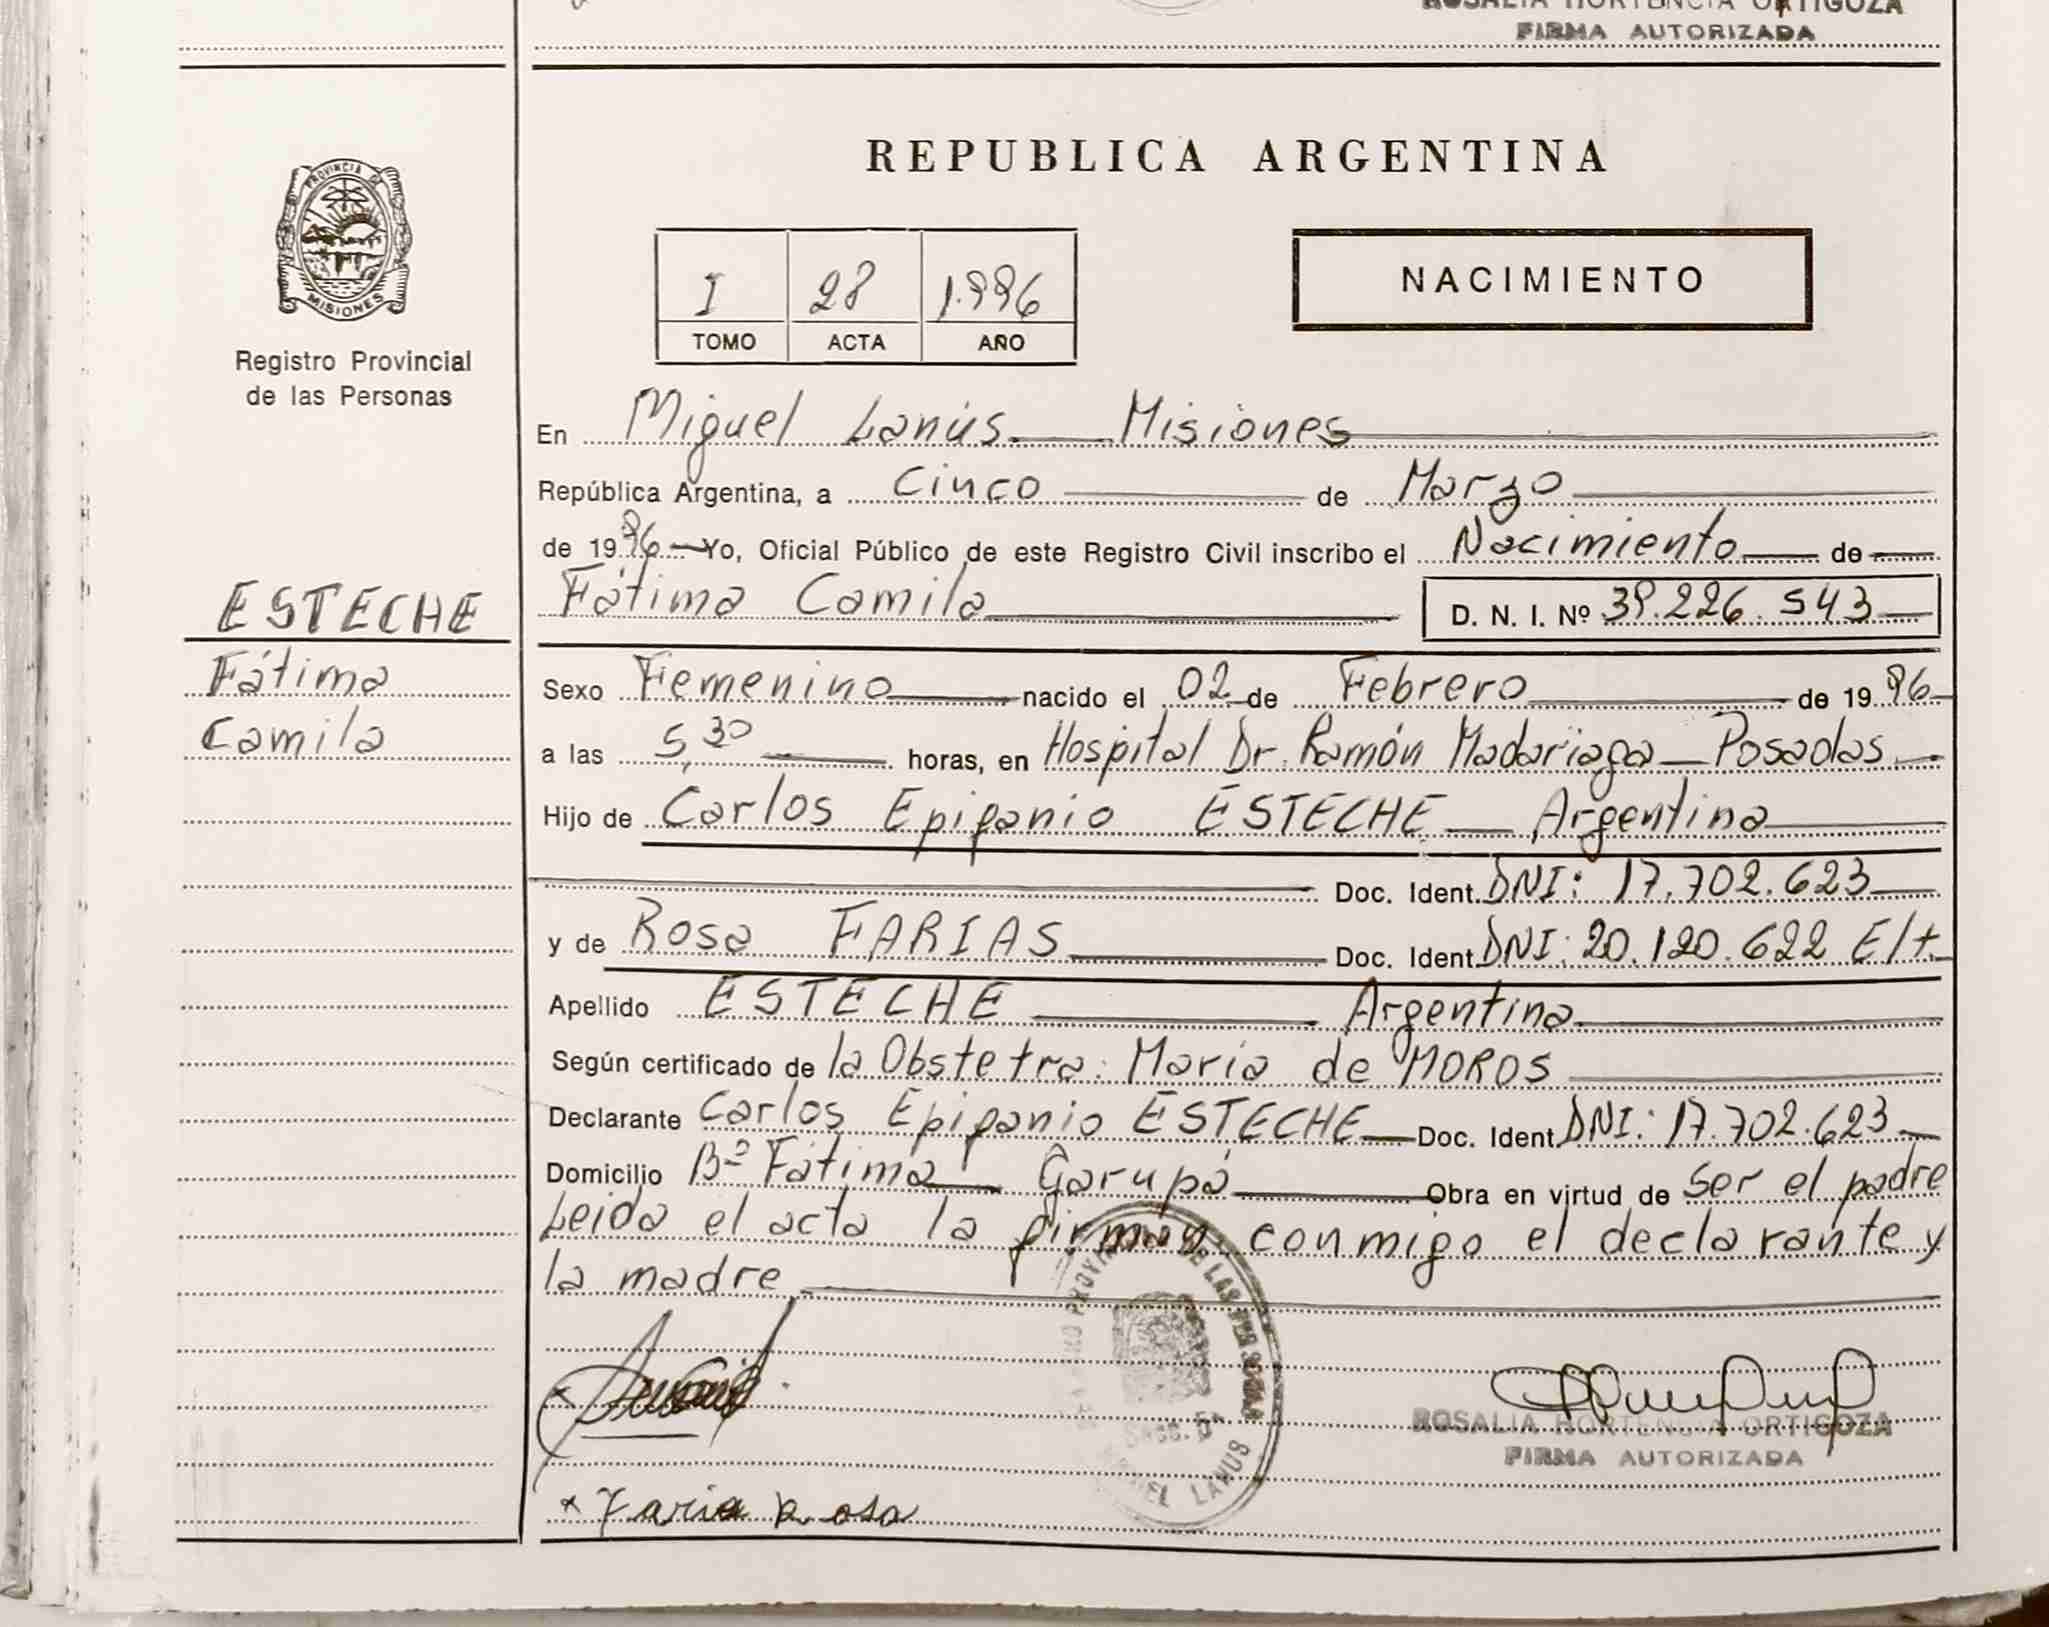 ROSALIA HORTENCIA ORTIGOZA
FIRMA AUTORIZADA
PROVINCIA DE
MISIONES
Registro Provincial
de las Personas
ESTECHE
Fátima
Camila
REPUBLICA ARGENTINA
I 28 1.996
TOMO ACTA AÑO
NACIMIENTO
En Miguel Lanús Misiones
República Argentina, a Cinco de Marzo
de 1996 Yo, Oficial Público de este Registro Civil inscribo el Nacimiento de
Fátima Camila D. N. I. Nº 39.226.543
Sexo Femenino nacido el 02 de Febrero de 1996
a las 5,30 horas, en Hospital Dr. Ramón Madariaga Posadas
Hijo de Carlos Epifanio ESTECHE Argentina
Doc. Ident. DNI: 17.702.623
y de Rosa FARIAS Doc. Ident. DNI: 20.120.622 E/t
Apellido ESTECHE Argentina
Según certificado de la Obstetra: María de MOROS
Declarante Carlos Epifanio ESTECHE Doc. Ident. DNI: 17.702.623
Domicilio Bº Fátima Garupá Obra en virtud de ser el padre
Leida el acta la firman conmigo el declarante y
la madre
DE LAS PERSONAS
Secc. 5ª
LANUS
ROSALIA HORTENCIA ORTIGOZA
FIRMA AUTORIZADA
x Faria Rosa